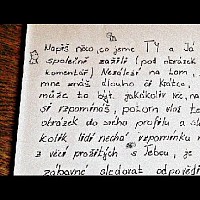 Napiš něco, co jsme TY a JÁ
společně zažili (pod obrázek
komentář) Nezáleží na tom,
mne znáš dlouho či krátce,
může to být jakákoliv věc, na
si vzpomínáš, potom vlož te
obrázek do svého profilu a sle
kolik lidí nechá vzpomínku n
z věcí prožitých s Tebou, je
zábavné sledovat odpověd